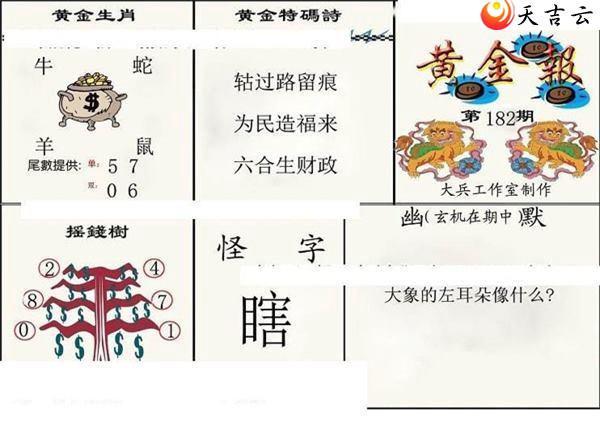 黄金生肖
牛 蛇
羊 鼠
尾數提供: 单: 5 7
双: 0 6
黄金特碼詩
轱过路留痕
为民造福来
六合生财政
天吉云
黄金報
第182期
大兵工作室制作
摇錢樹
2 4
8 7
0 1
怪字
瞎
幽(玄机在期中)默
大象的左耳朵像什么?